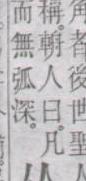 角者後世聖
稱。朝人曰。凡
而無弧深。